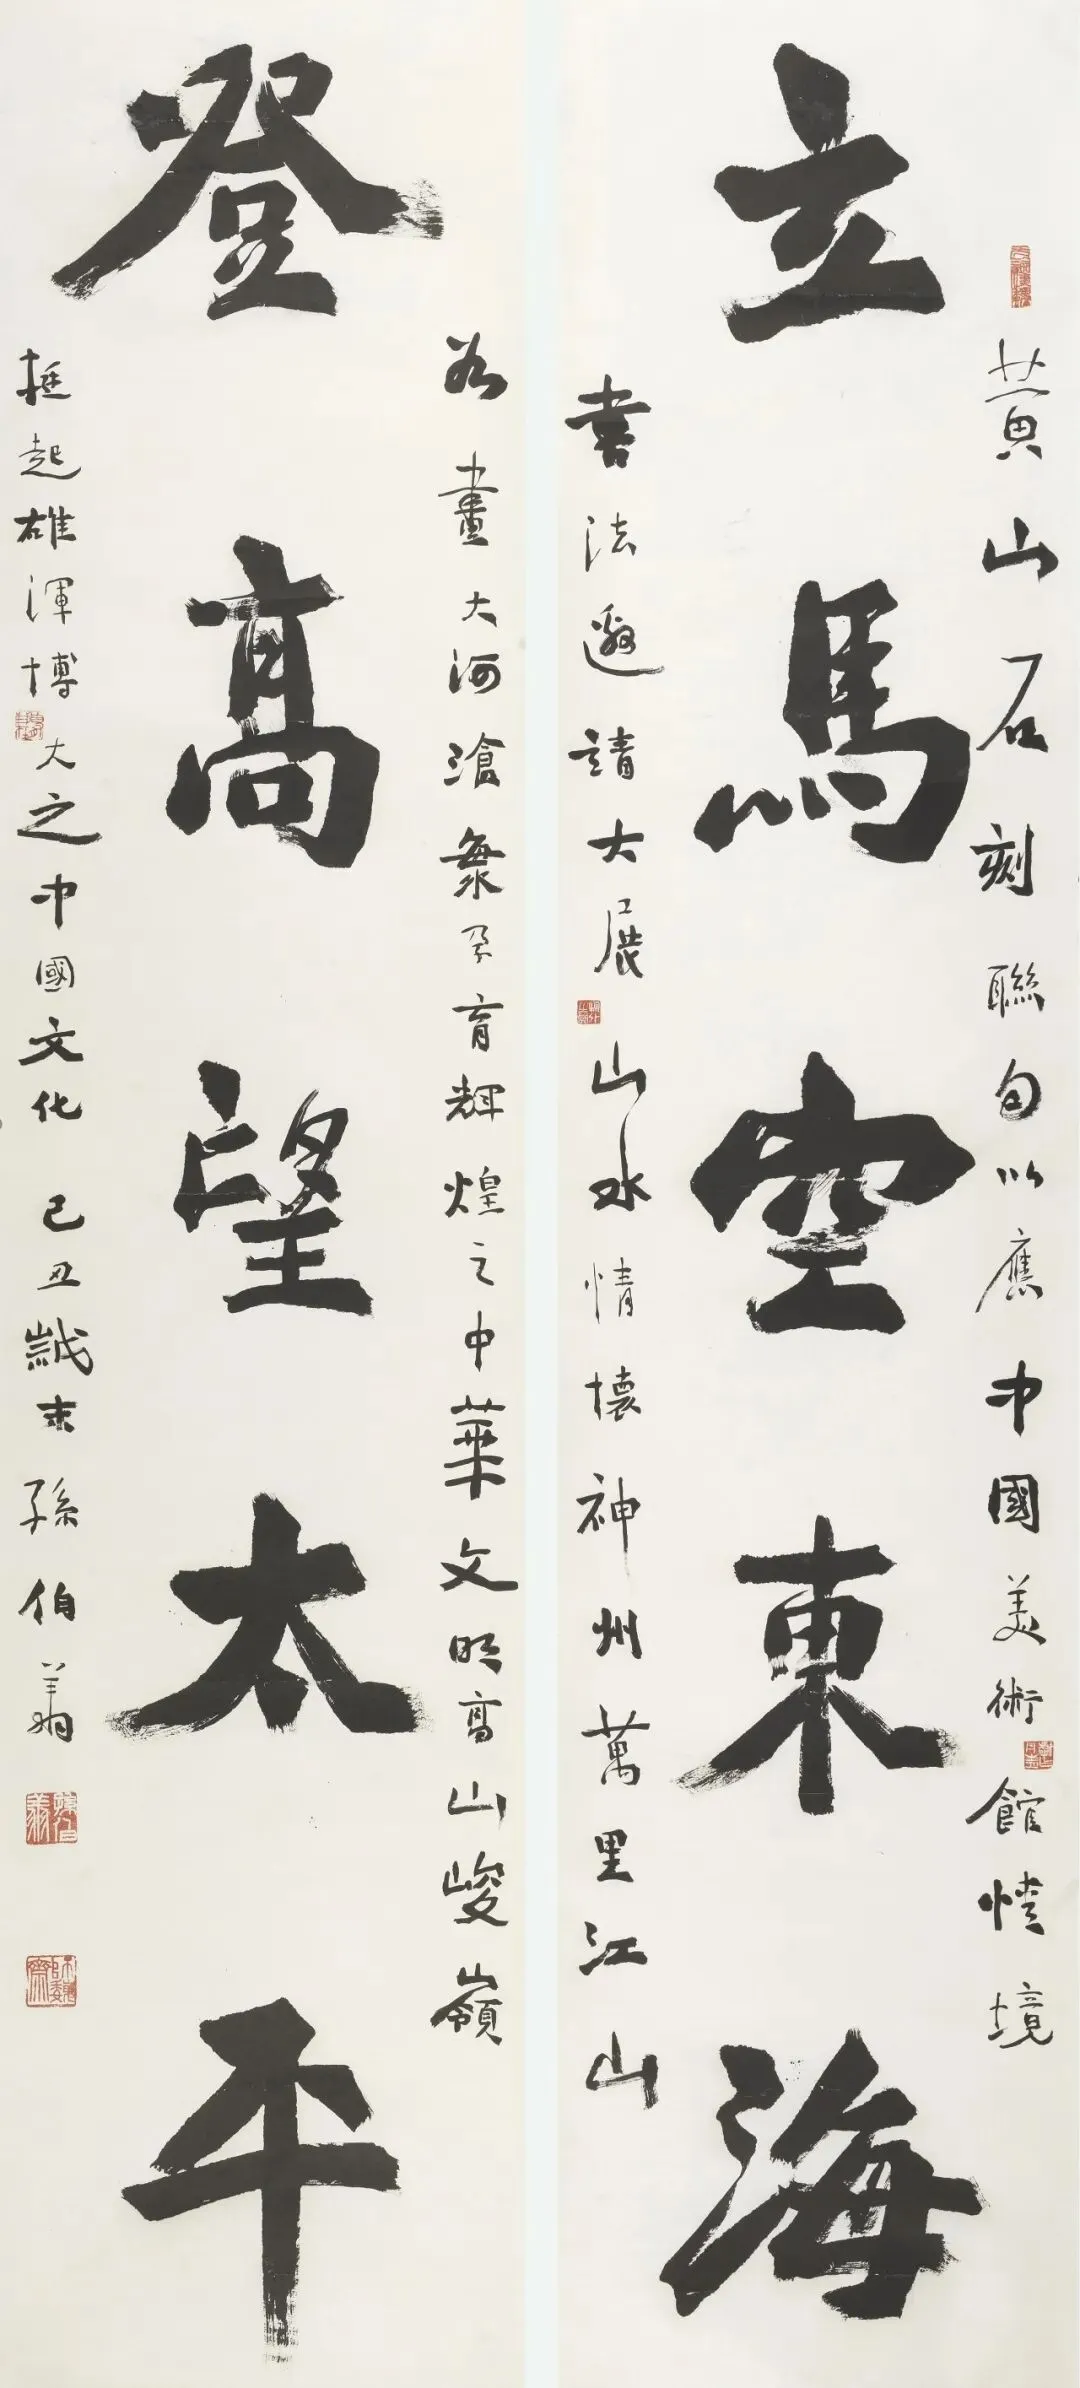 黃山石刻聯句以應中國美術館境
立馬空東海
書法邀請大展山水情懷神州萬里江山
如畫大河滄海孕育輝煌之中華文明高山峻嶺
登高望太平
挺起雄渾博大之中國文化 己丑歲末孫伯翔